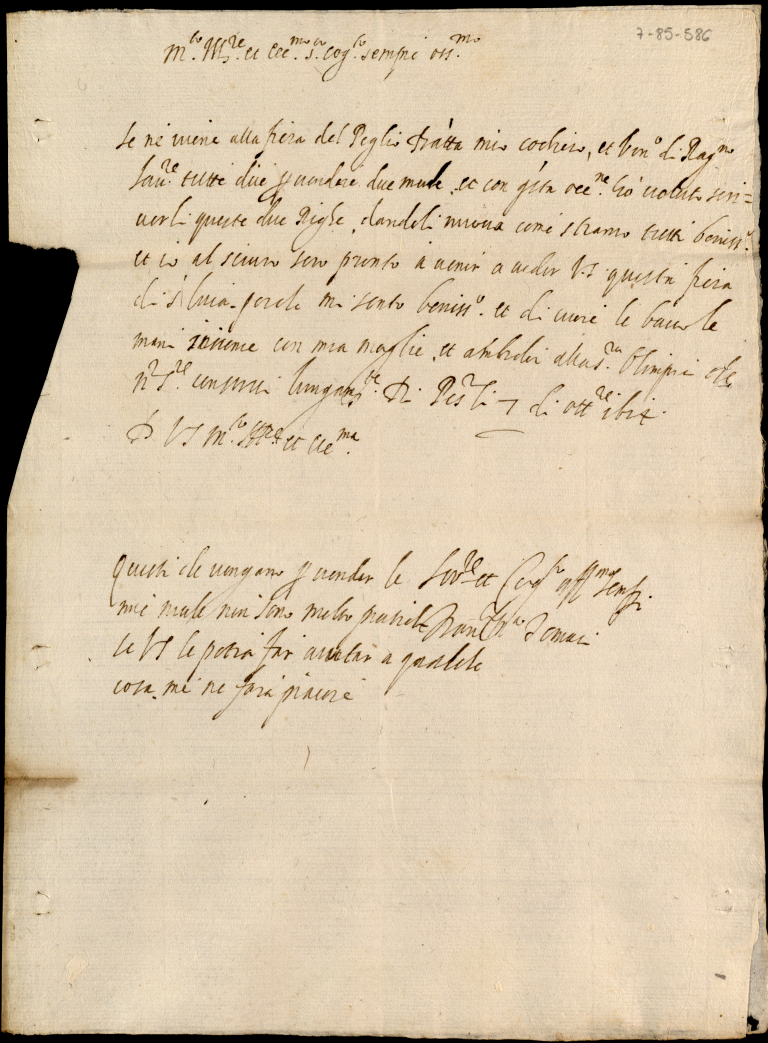 7-85-586
m.co Ill.re et ecc.mo s.r cog.to sempre oss.mo
se ne viene alla fiera del Peglio Tratta mio cochiero, et Ven.o di Rag.no
Sau.re tutti due p vendere due mule, et con q.ta occ.ne hò voluto scri=
verli queste due Righe, dandoli nuova come stiamo tutti beniss.o
et io al sicuro sero pronto à venir a veder VS questa fiera
di s. luca, perche mi sento beniss.o et di cuore le bacio le
mani insieme con mia moglie, et ambidoi alla s.ra Olimpia che
N.ro S.re conservi lungam.te Di li 7 di ott.re
D VS m.co Ill.re et ecc.ma
Questi che vengano p vender le
mie mule non sono molto pratichi
se VS le potrà far aiutar a qualche
cosa, me ne farà piacere
Ser.re et Cog.to aff.mo sempre